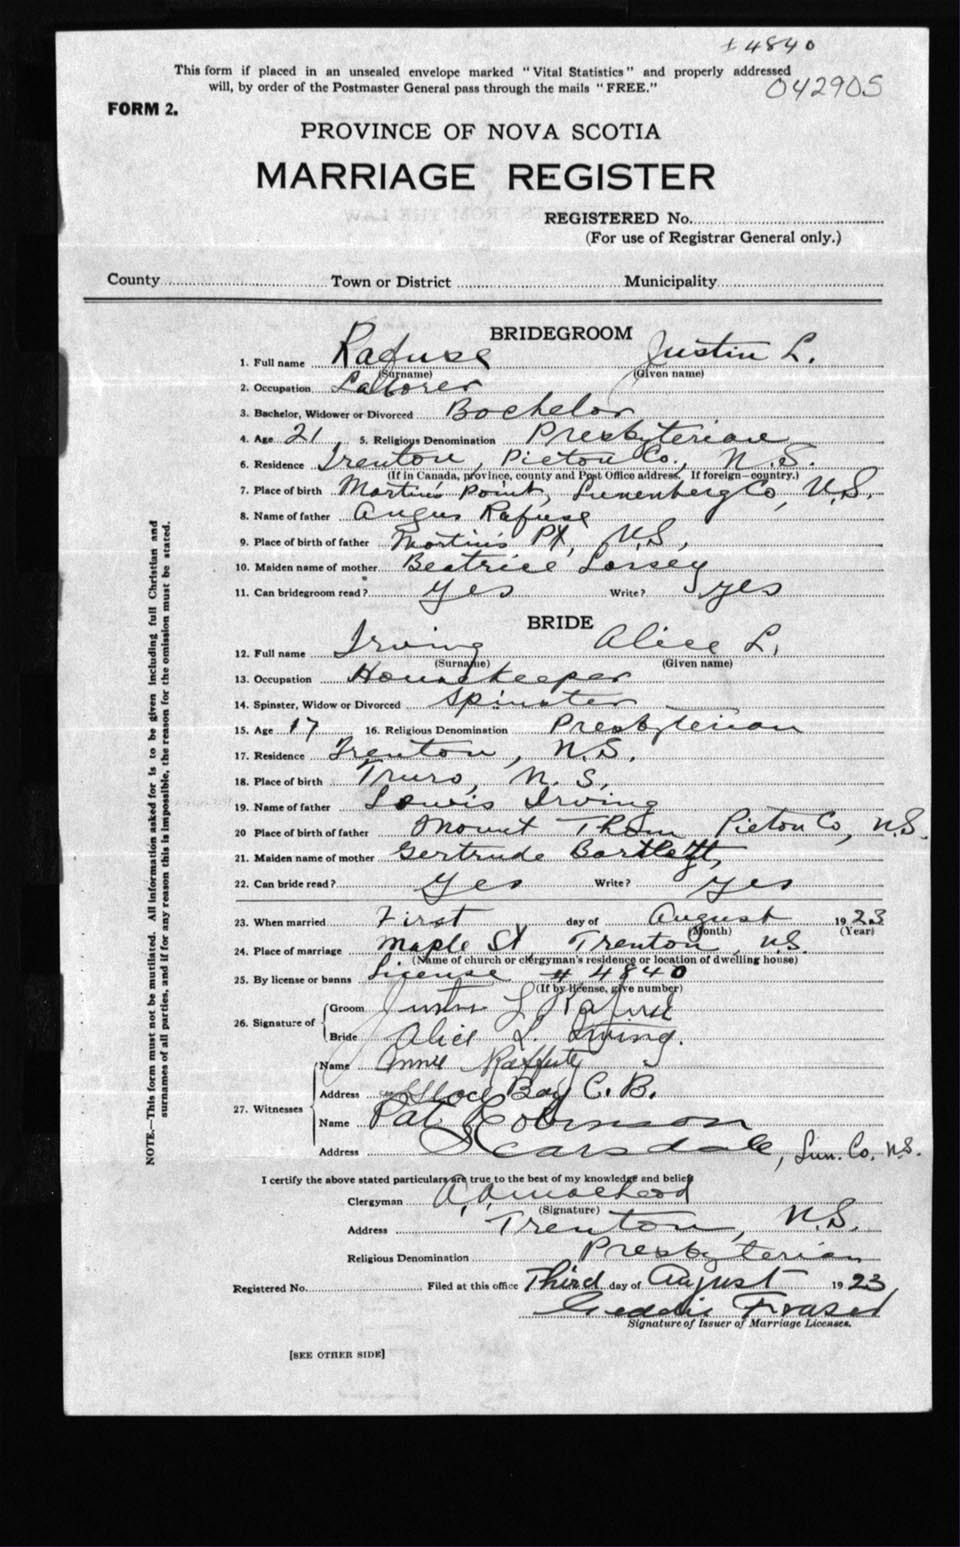 ± 4840
This form if placed in an unsealed envelope marked "Vital Statistics" and properly addressed
will, by order of the Postmaster General pass through the mails "FREE."
042905
FORM 2.
PROVINCE OF NOVA SCOTIA
MARRIAGE REGISTER
REGISTERED No.
(For use of Registrar General only.)
County Town or District Municipality
BRIDEGROOM
1. Full name Rafuse Justin L.
(Surname) (Given name)
2. Occupation Laborer
3. Bachelor, Widower or Divorced Bachelor
4. Age 21 5. Religious Denomination Presbyterian
6. Residence Trenton, Pictou Co., N.S.
(If in Canada, province, county and Post Office address. If foreign—country.)
7. Place of birth Martin's Point, Lunenberg Co, N.S.
8. Name of father Angus Rafuse
9. Place of birth of father Martin's Pt, N.S.,
10. Maiden name of mother Beatrice
11. Can bridegroom read? Yes Write? yes
BRIDE
12. Full name Irving Alice L.
(Surname) (Given name)
13. Occupation Housekeeper
14. Spinster, Widow or Divorced Spinster
15. Age 17 16. Religious Denomination Presbyterian
17. Residence Trenton, N.S.
18. Place of birth Truro, N.S.,
19. Name of father Lewis Irving
20 Place of birth of father Mount Thom Pictou Co, N.S.
21. Maiden name of mother Gertrude Bartlett,
22. Can bride read? Yes Write? yes
23. When married First day of August 1923
(Month) (Year)
24. Place of marriage Maple St, Trenton, N.S.
(Name of church or clergyman's residence or location of dwelling house)
25. By license or banns License # 4840
(If by license, give number)
26. Signature of Groom Justin L. Rafuse
Bride Alice L. Irving.
27. Witnesses Name Annie Rafferty
Address Glace Bay C. B.
Name Pat Robinson
Address Scarsdale, Lun. Co. N.S.
I certify the above stated particulars are true to the best of my knowledge and belief
Clergyman
(Signature)
Address Trenton, N.S.
Religious Denomination Presbyterian
Registered No. Filed at this office Third day of August 1923
Geddie Fraser
Signature of Issuer of Marriage Licenses.
[SEE OTHER SIDE]
NOTE.—This form must not be mutilated. All information asked for is to be given including full Christian and
surnames of all parties, and if for any reason this is impossible, the reason for the omission must be stated.